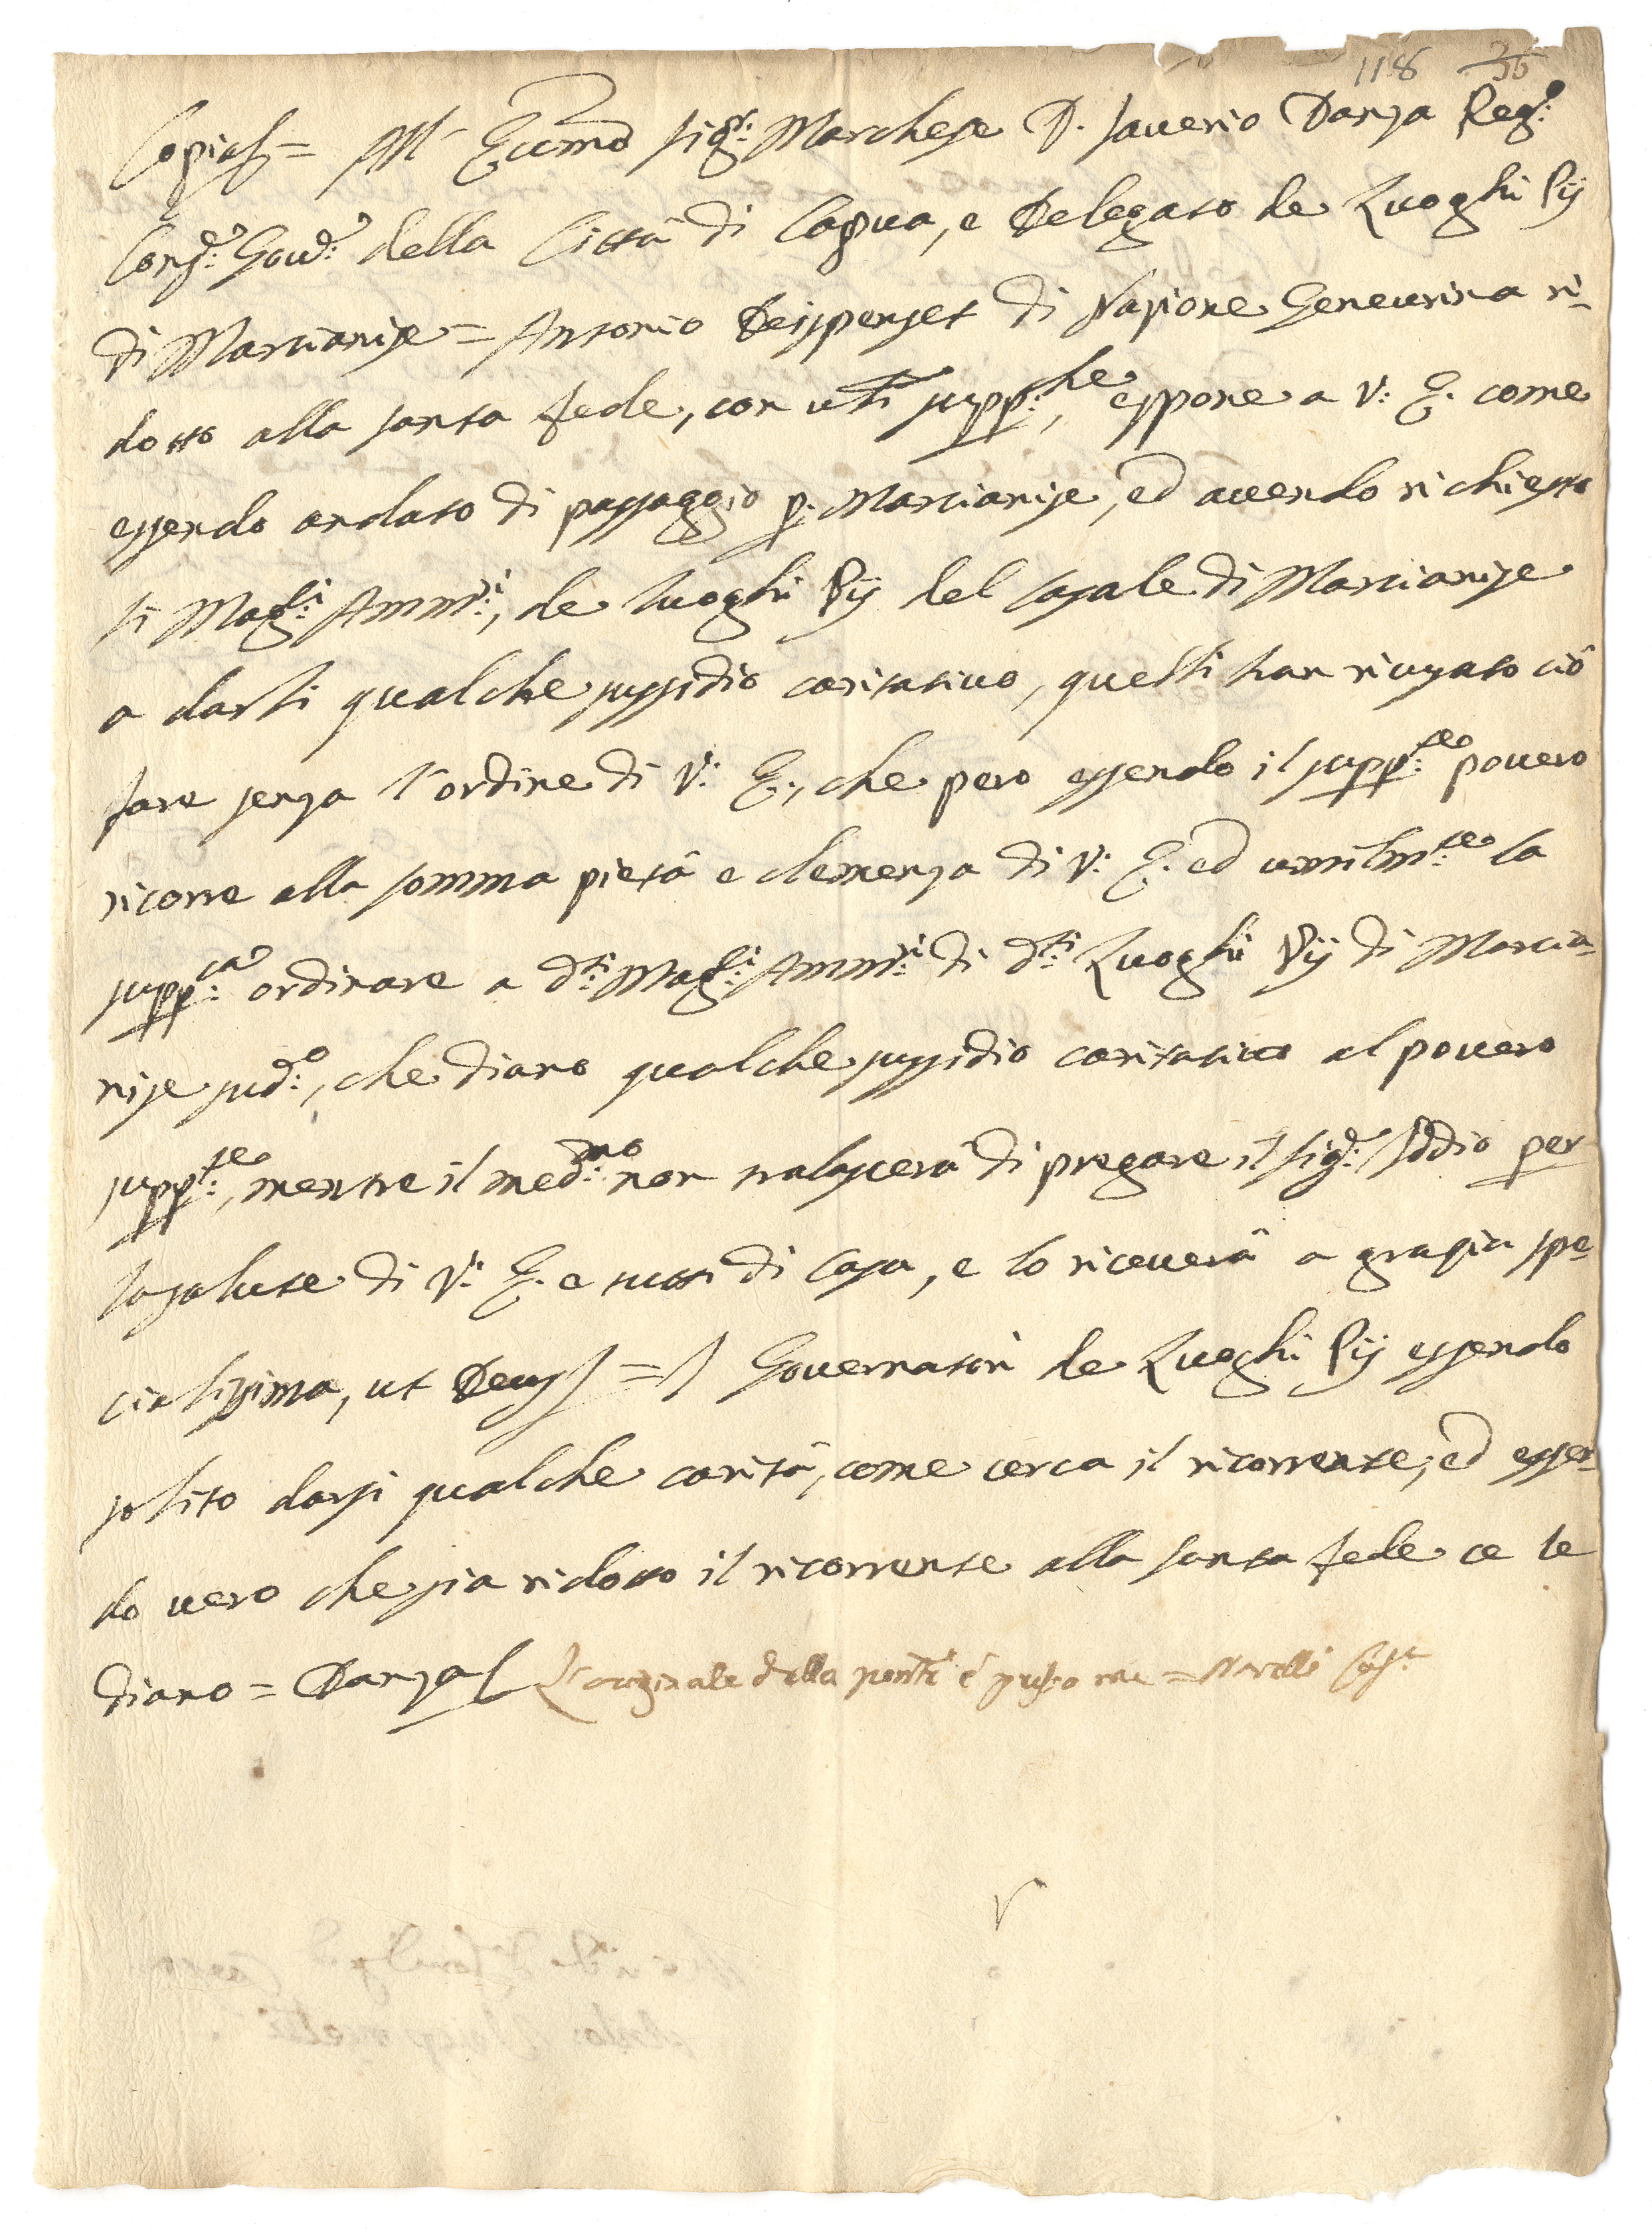 118 35
Copia = All' Eccmo Sigr: Marchese D. Saverio Danza Rego:
Consre: Goure: della Città di Capua, e Delegato de Luoghi Pij
di Marcianise = Antonio Deisperget di Nazione Geneurina ri-
dotto alla santa fede, con uti supp:che, espone a V: E. come
essendo andato di passaggio p: Marcianise, ed avendo richiesto
li Mag:ci Amm:ri, de luoghi Pij del casale di Marcianise
a darli qualche sussidio caritativo, quelli han ricusato ciò
fare senza l'ordine di V: E., che però essendo il supp:te povero
ricorre alla somma pietà e clemenza di V: E. ed umilm:te la
supp:ca ordinare a d:ti Mag:ci Amm:ri di d:ti Luoghi Pij di Marcia-
nise sud:o, che diano qualche sussidio caritativo al povero
supp:te, mentre il med:mo non tralascerà di pregare il Sig:re Iddio per
la salute di V: E. e tutti di casa, e lo riceverà a grazia spe-
cialissima, ut Deus = I Governatori de Luoghi Pij essendo
solito darsi qualche carità, come cerca il ricorrente, ed essen-
do vero che sia ridotto il ricorrente alla santa fede ce le
diano = Danza L'originale della pnte è presso me = Novelli